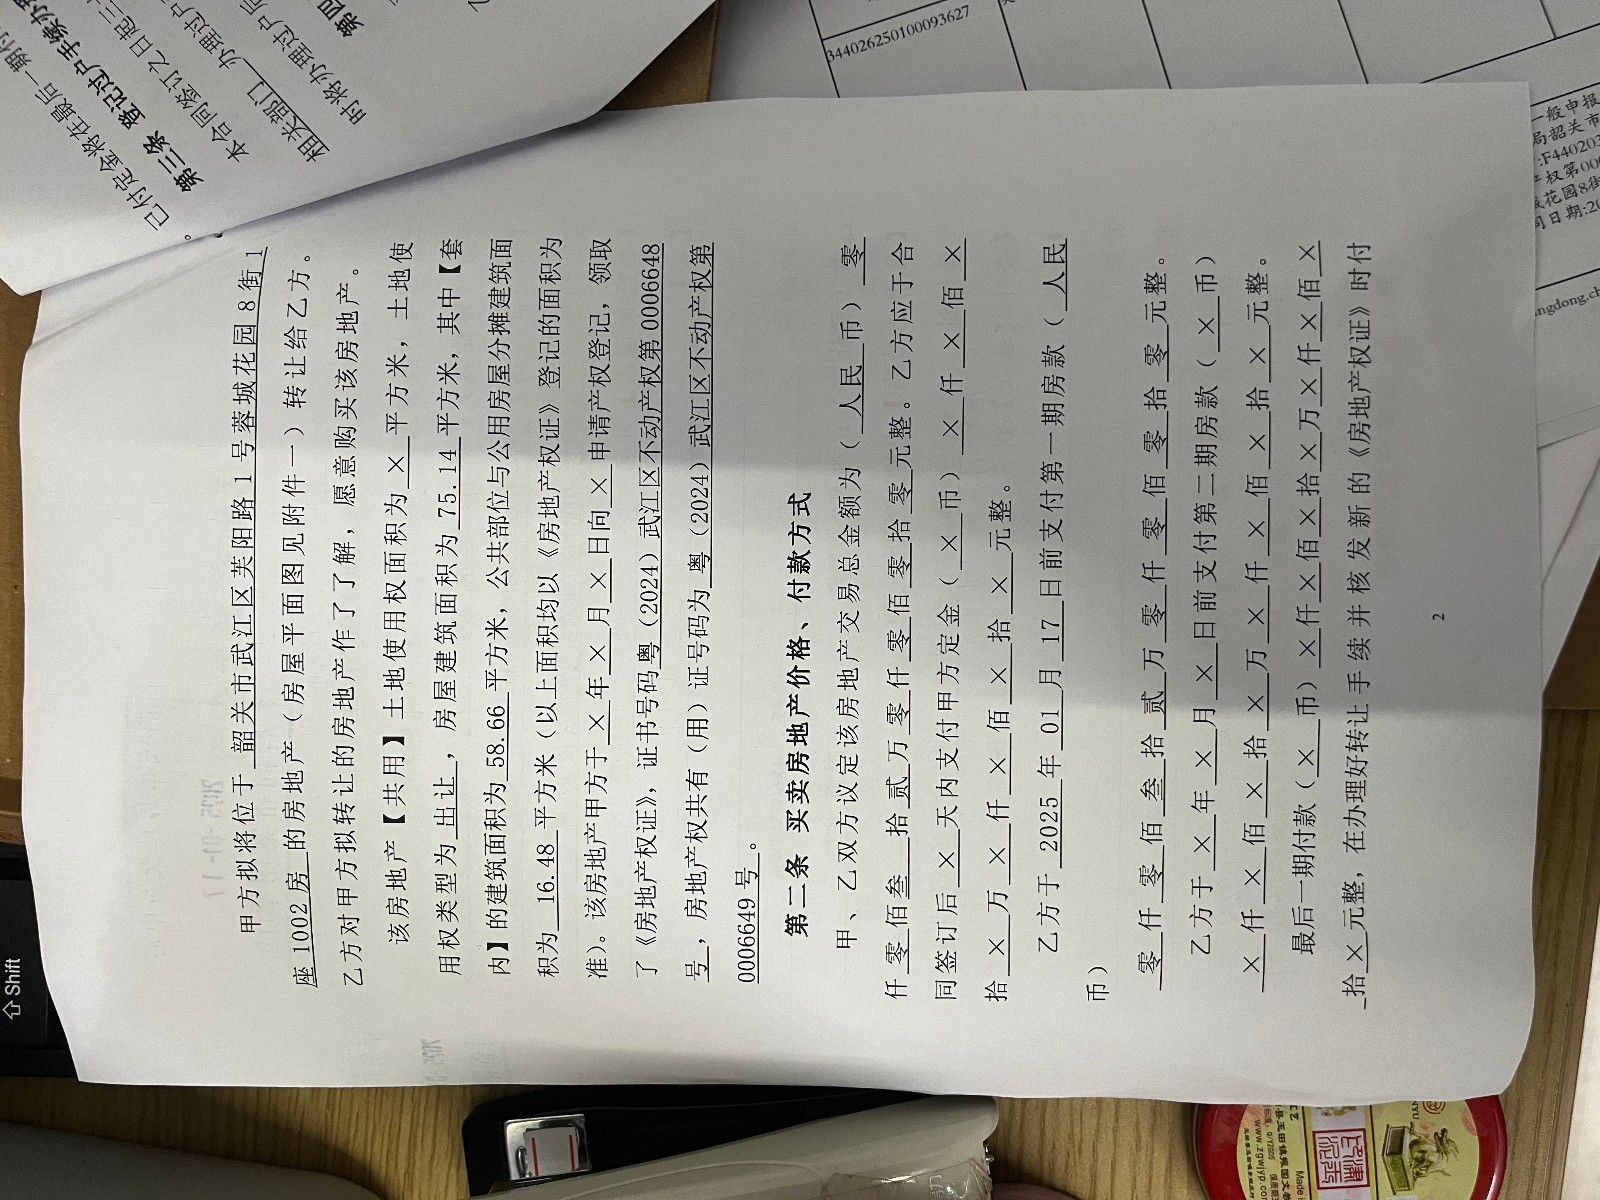 甲方拟将位于 韶关市武江区芙阳路1号蓉城花园8街1
座1002房 的房地产（房屋平面图见附件一）转让给乙方。
乙方对甲方拟转让的房地产作了了解，愿意购买该房地产。
该房地产【共用】土地使用权面积为 × 平方米，土地使
用权类型为 出让 ，房屋建筑面积为 75.14 平方米，其中【套
内】的建筑面积为 58.66 平方米，公共部位与公用房屋分摊建筑面
积为 16.48 平方米（以上面积均以《房地产权证》登记的面积为
准）。该房地产甲方于 × 年 × 月 × 日向 × 申请产权登记，领取
了《房地产权证》，证书号码 粤（2024）武江区不动产权第0006648
号 ，房地产权共有（用）证号码为 粤（2024）武江区不动产权第
0006649号 。
第二条 买卖房地产价格、付款方式
甲、乙双方议定该房地产交易总金额为（ 人民 币） 零
仟 零 佰 叁 拾 贰 万 零 仟 零 佰 零 拾 零 元整。乙方应于合
同签订后 × 天内支付甲方定金（ × 币） × 仟 × 佰 ×
拾 × 万 × 仟 × 佰 × 拾 × 元整。
乙方于 2025 年 01 月 17 日前支付第一期房款（ 人民
币）
零 仟 零 佰 叁 拾 贰 万 零 仟 零 佰 零 拾 零 元整。
乙方于 × 年 × 月 × 日前支付第二期房款（ × 币）
× 仟 × 佰 × 拾 × 万 × 仟 × 佰 × 拾 × 元整。
最后一期付款（ × 币） × 仟 × 佰 × 拾 × 万 × 仟 × 佰 ×
拾 × 元整，在办理好转让手续并核发新的《房地产权证》时付
2
已付定金将在最后一期付
。
第三条 登记过户手续办理
本合同签订之日起三
相关部门 办理过户
时将办理过户后
第四
344026250100093627
一般申报
局韶关市
:F440203
权第000
花园8街
同日期:20
ngdong.ch
Shift
2025-01-17
Made i
www.zgwjyp.co